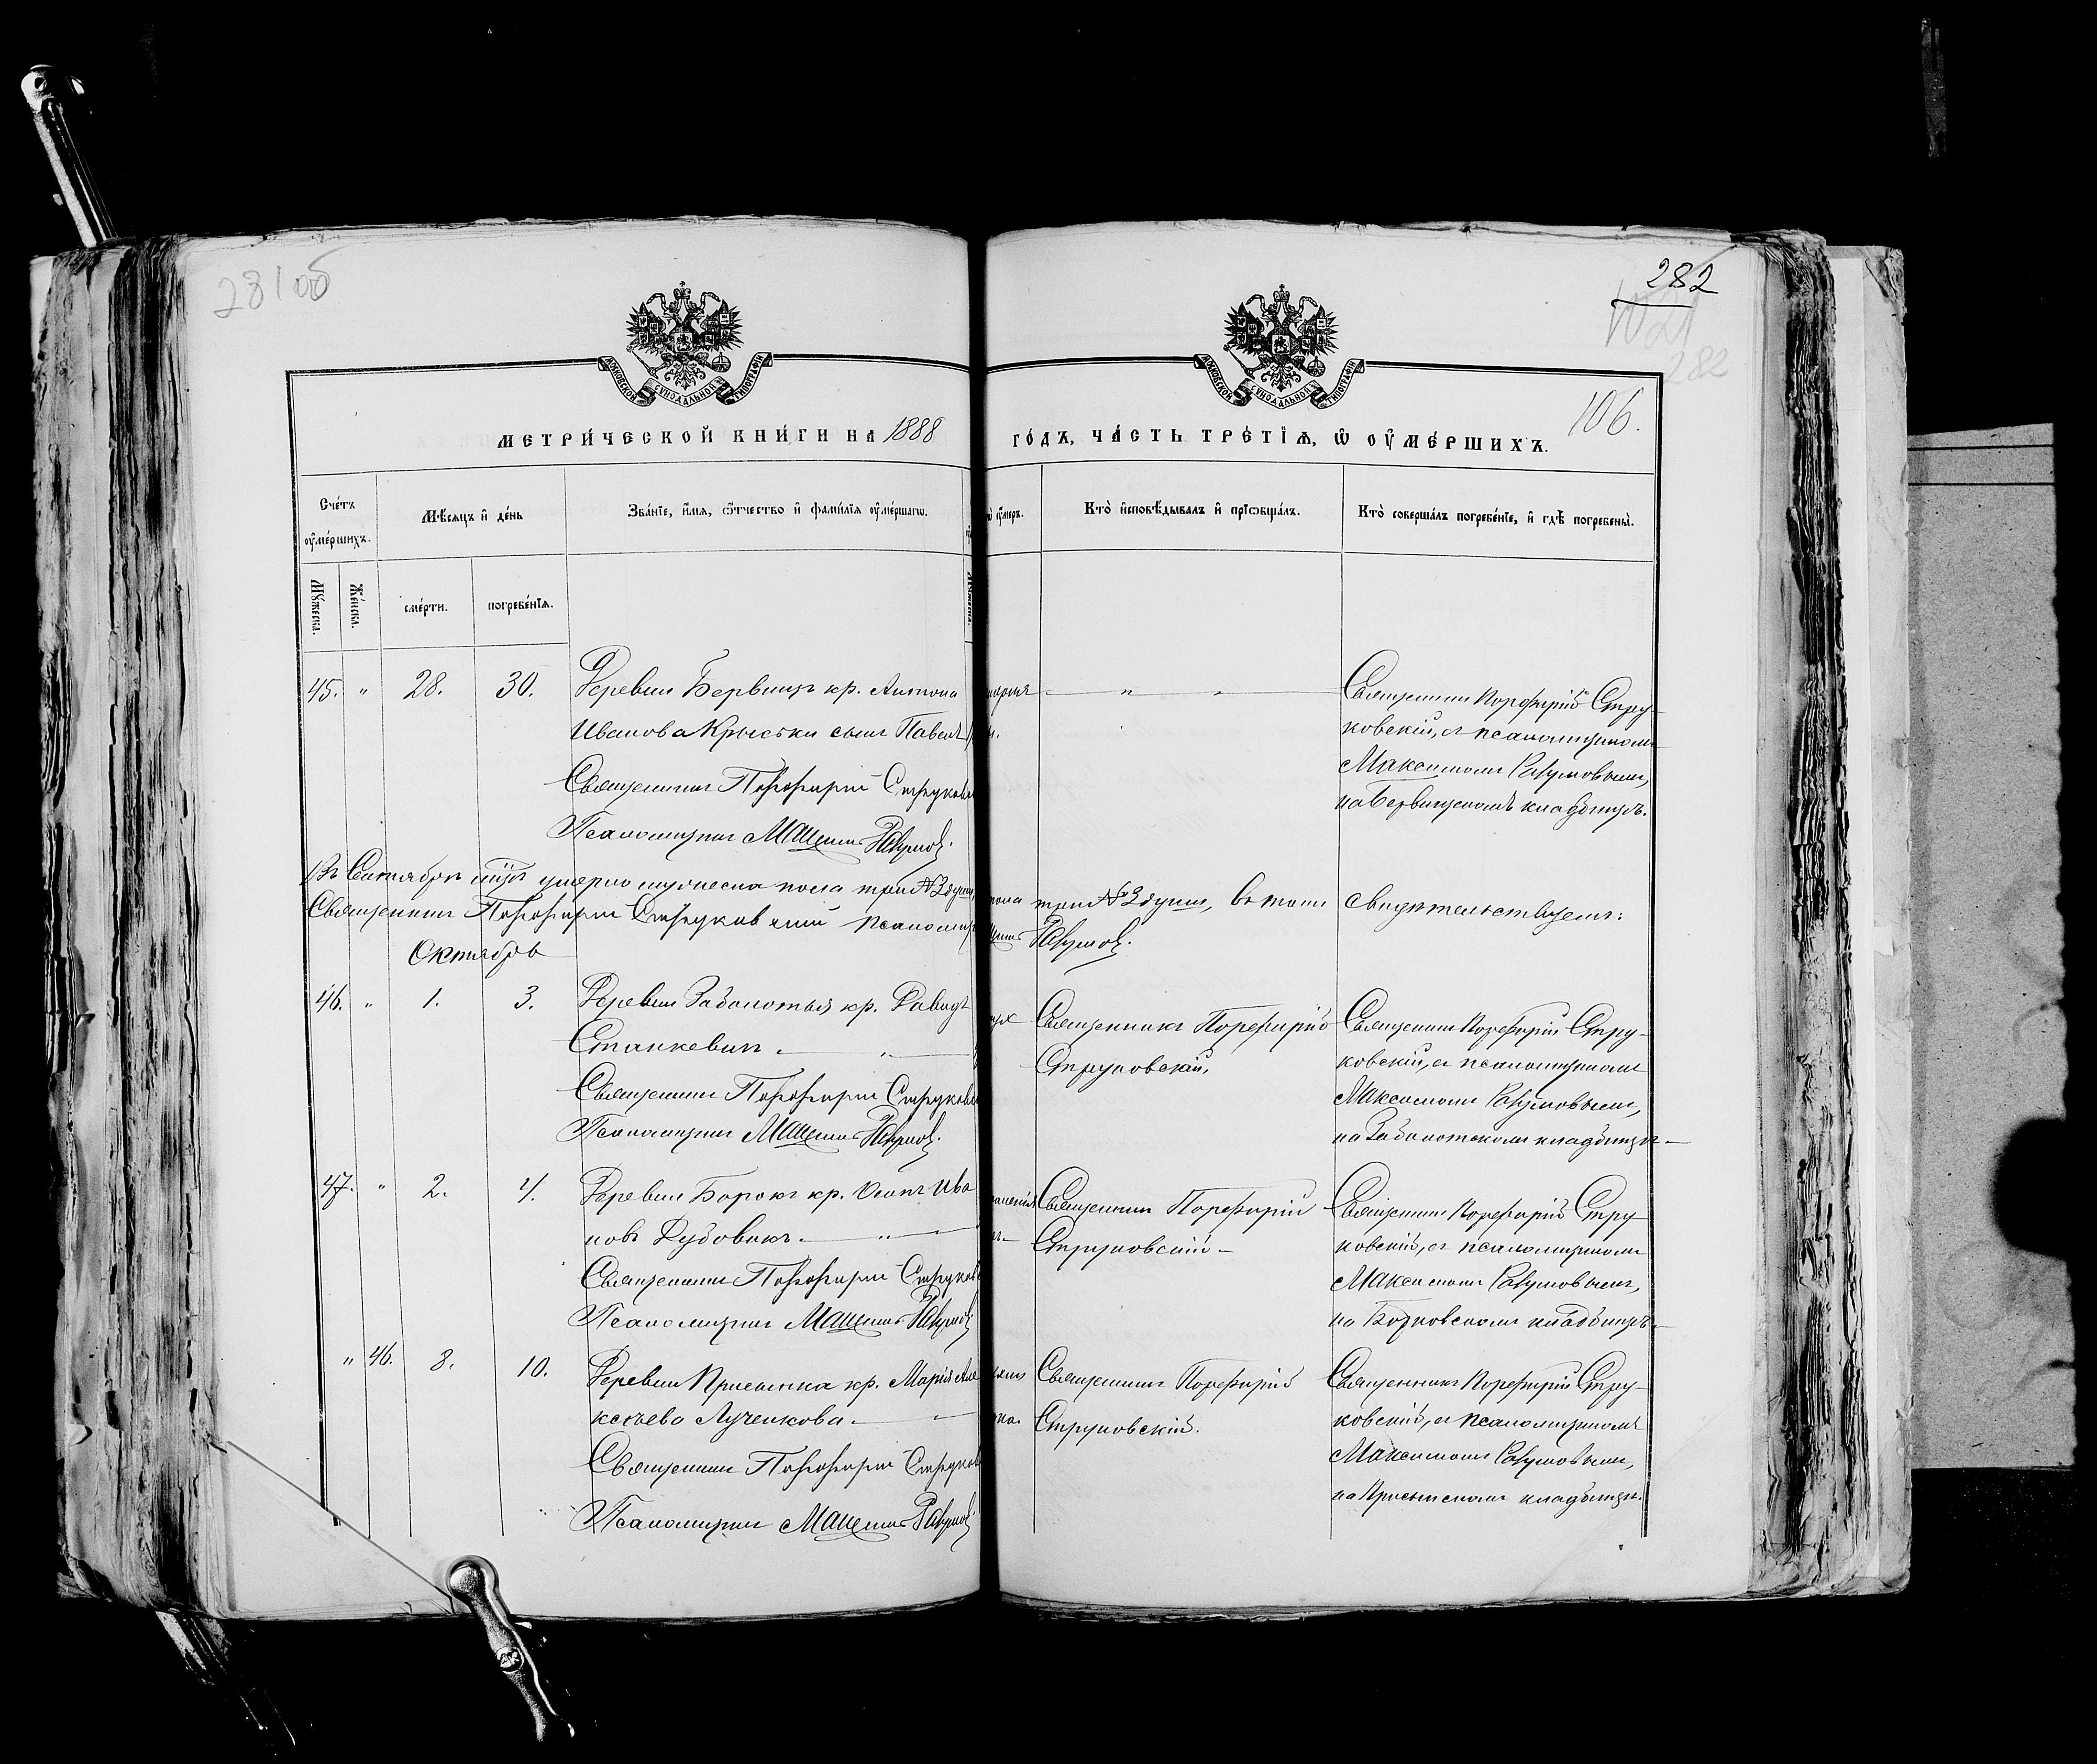 281 об
282
282
106.
МОСКОВСКОЙ СѴНОДАЛЬНОЙ ТИПОГРАФІИ
МОСКОВСКОЙ СѴНОДАЛЬНОЙ ТИПОГРАФІИ
МЕТРИ́ЧЕСКОЙ КНИ́ГИ НА 1888
ГО́ДЪ, ЧА́СТЬ ТРЕ́ТІѦ, Ѡ҆ ОУ҆МЕ́РШИХЪ.
Сче́тъ оу҆ме́ршихъ.
Мѣ́сяцъ и҆ де́нь
Зва́нїе, и҆́мѧ, ѻ҆́тчество и҆ фами́лїѧ оу҆ме́ршагѡ.
оу҆́меръ.
Кто̀ и҆сповѣ́дывалъ и҆ прїѡбща́лъ.
Кто̀ соверша́лъ погребе́нїе, и҆ гдѣ̀ погребены̀.
Му́жеска.
Же́нска.
сме́рти.
погребе́нїѧ.
45. " 28. 30. Деревни Бервищъ кр. Антона
Иванова Крыськи сынъ Павелъ
Священникъ Порфирій Струковс
Псаломщикъ Максимъ Разумов.
" "
Священникъ Порфирій Стру-
ковскій, съ псаломщикомъ
Максимомъ Разумовымъ,
на Бервищскомъ кладбищѣ.
Въ Сентябрѣ м-цѣ умерло мужеска пола три №3 души,
пола три №3 души, въ томъ свидѣтельствуемъ:
Священникъ Порфирій Струковскій псаломщ
Разумов.
Октябрь
46. " 1. 3. Деревни Заболотья кр. Давидъ
Станкевичъ "
Священникъ Порфирій Струковс
Псаломщикъ Максимъ Разумов.
Священникъ Порфирій
Струковскій.
Священникъ Порфирій Стру-
ковскій, съ псаломщикомъ
Максимомъ Разумовымъ,
на Заболотскомъ кладбищѣ
47. " 2. 4. Деревни Борокъ кр. Осипъ Ива
новъ Дубовикъ "
Священникъ Порфирій Струков
Псаломщикъ Максимъ Разумов
Священникъ Порфирій
Струковскій
Священникъ Порфирій Стру
ковскій, съ псаломщикомъ
Максимомъ Разумовымъ,
на Борковскомъ кладбищѣ
" 46. 8. 10. Деревни Присынка кр. Марія Але
ксѣева Лученкова "
Священникъ Порфирій Струков
Псаломщикъ Максимъ Разумов
Священникъ Порфирій
Струковскій.
Священникъ Порфирій Стру-
ковскій, съ псаломщикомъ
Максимомъ Разумовымъ,
на Присынскомъ кладбищѣ.